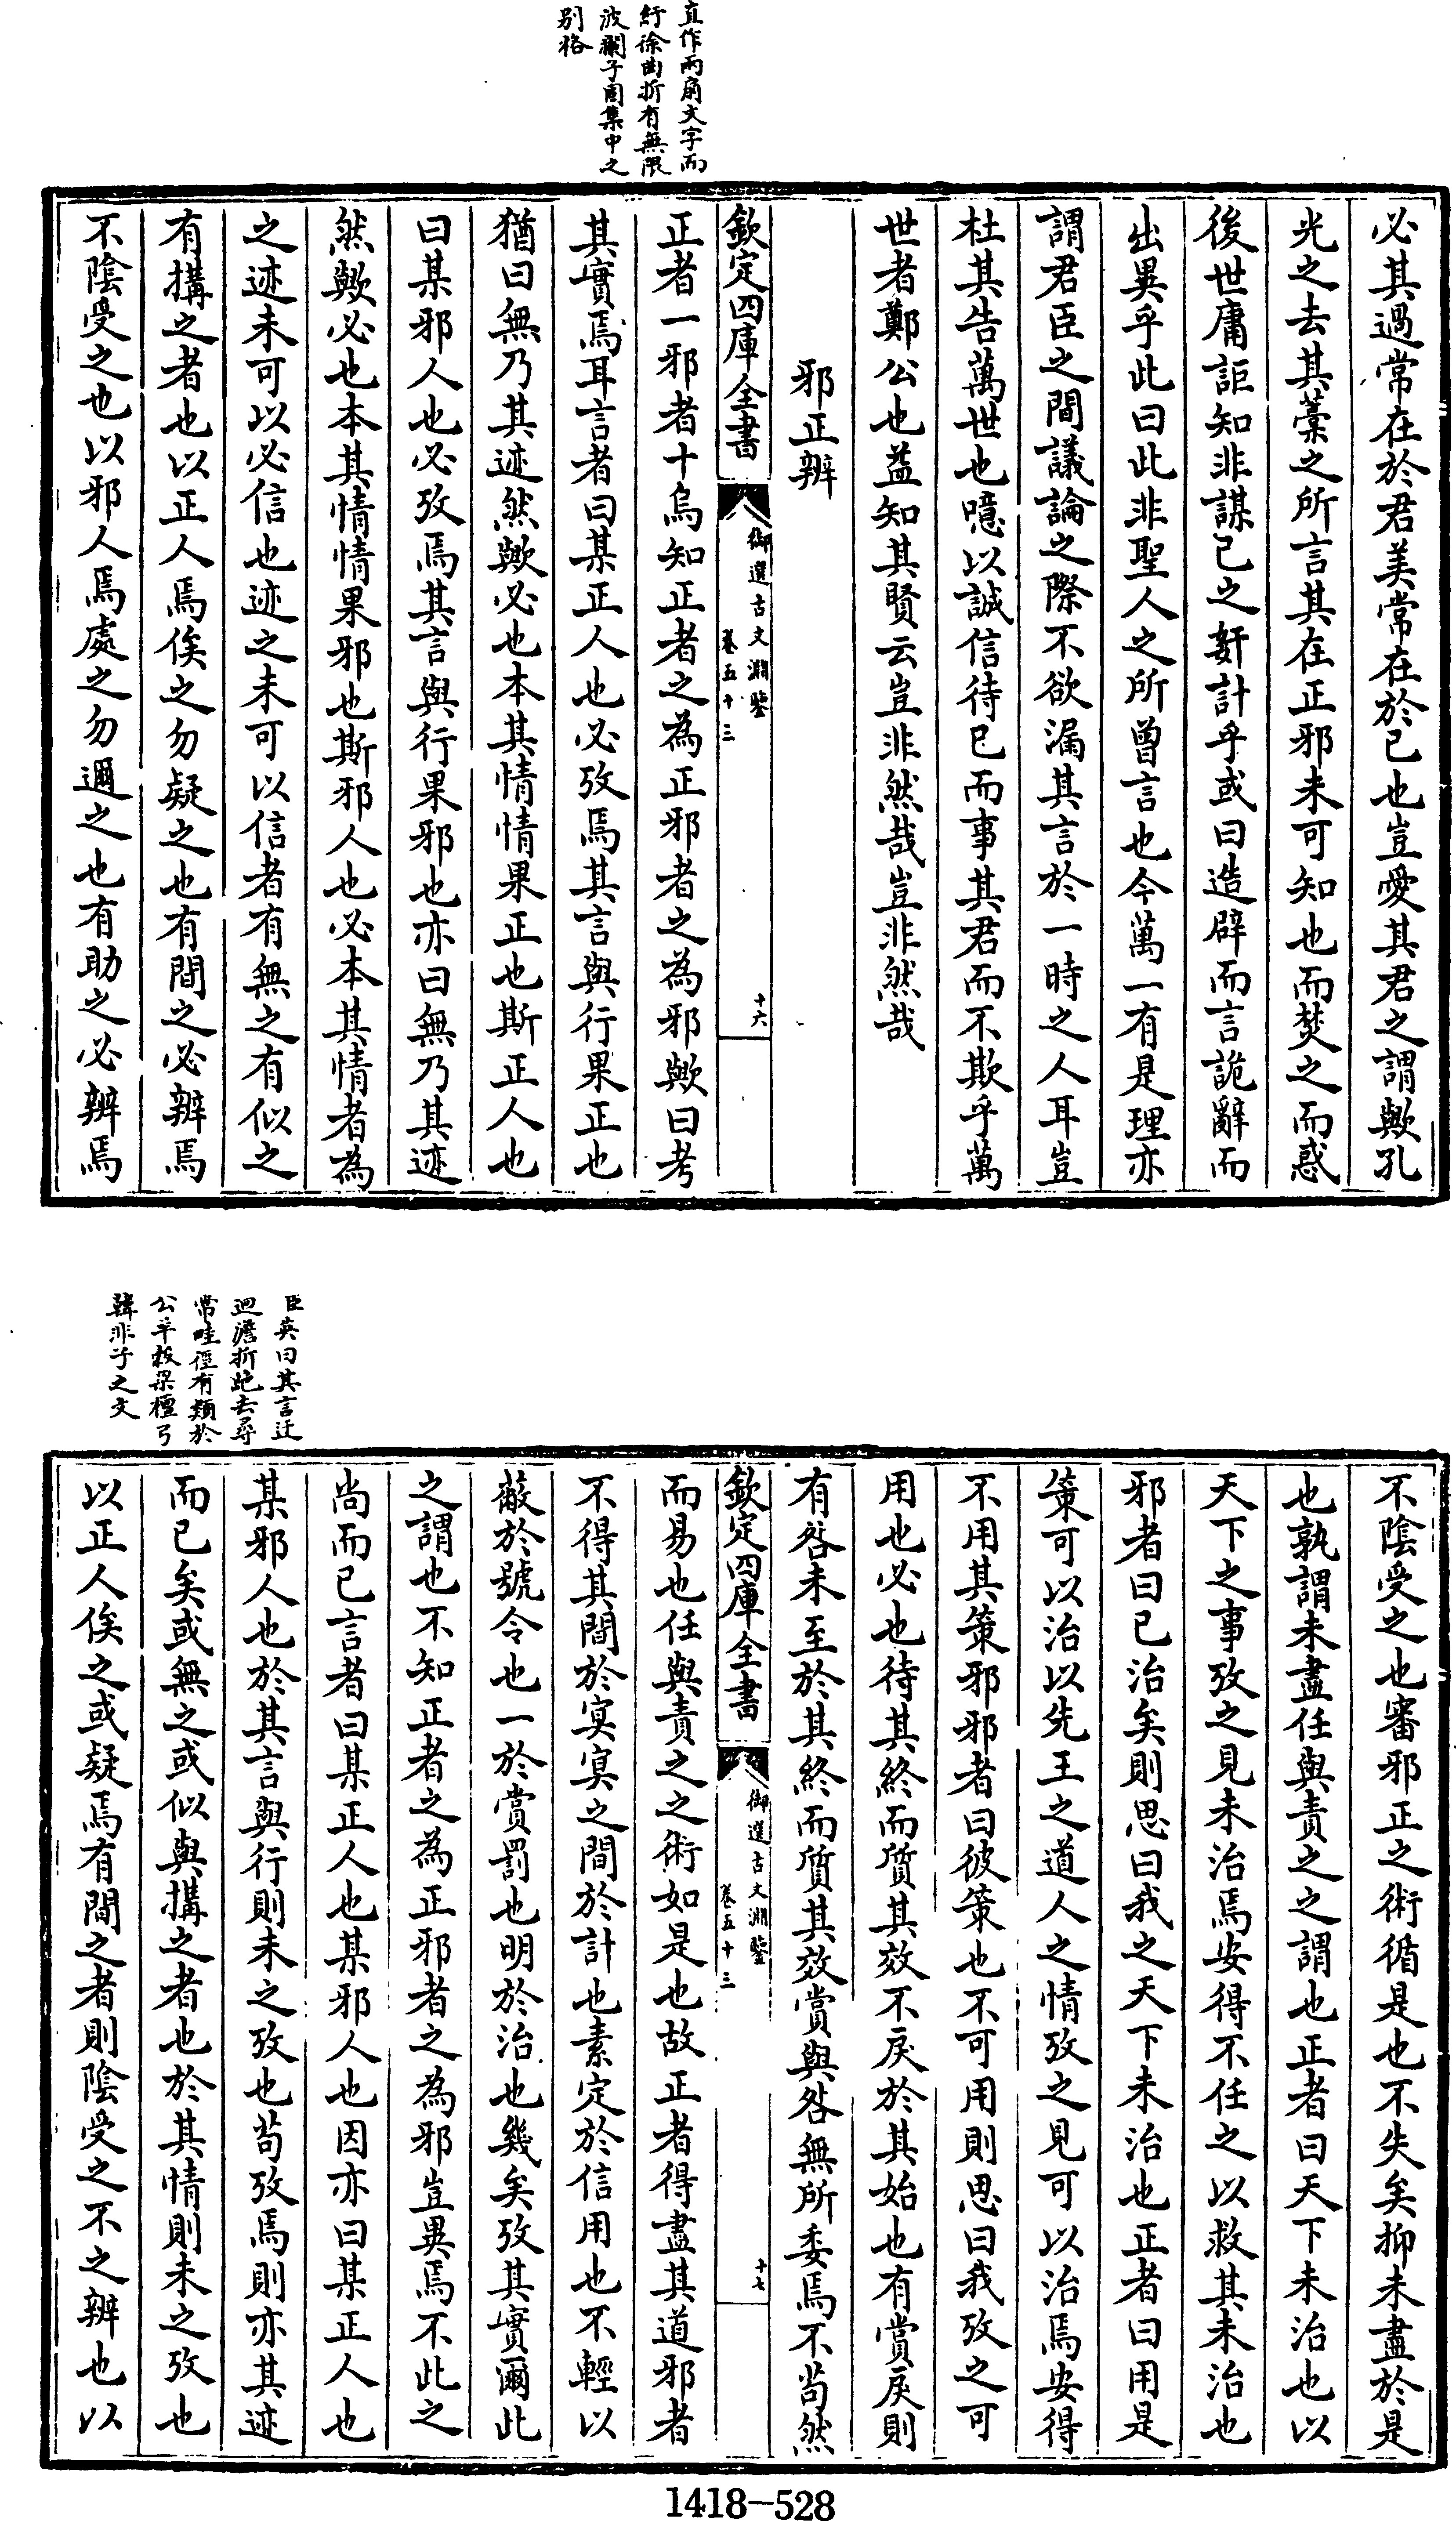 直作兩扇文字而
紆徐曲折有無限
波瀾子固集中之
别格
必其過常在於君美常在於已也豈愛其君之謂歟孔
光之去其藁之所言其在正邪未可知也而焚之而惑
後世庸詎知非謀已之姧計乎或曰造辟而言詭辭而
出異乎此曰此非聖人之所曾言也今萬一有是理亦
謂君臣之間議論之際不欲漏其言於一時之人耳豈
杜其告萬世也噫以誠信待已而事其君而不欺乎萬
世者鄭公也益知其賢云豈非然哉豈非然哉
邪正辨
欽定四庫全書
御選古文淵鑒
卷五十三
十六
正者一邪者十烏知正者之為正邪者之為邪歟曰考
其實焉耳言者曰某正人也必攷焉其言與行果正也
猶曰無乃其迹然歟必也本其情情果正也斯正人也
曰某邪人也必攷焉其言與行果邪也亦曰無乃其迹
然歟必也本其情情果邪也斯邪人也必本其情者為
之迹未可以必信也迹之未可以信者有無之有似之
有搆之者也以正人焉俟之勿疑之也有間之必辨焉
不陰受之也以邪人焉處之勿邇之也有助之必辨焉
臣英曰其言迂
迴澹折跎去尋
常畦徑有類於
公羊穀梁檀弓
韓非子之文
不陰受之也審邪正之術循是也不失矣抑未盡於是
也孰謂未盡任與責之之謂也正者曰天下未治也以
天下之事攷之見未治焉安得不任之以救其未治也
邪者曰已治矣則思曰我之天下未治也正者曰用是
策可以治以先王之道人之情攷之見可以治焉安得
不用其策邪邪者曰彼策也不可用則思曰我攷之可
用也必也待其終而質其效不戾於其始也有賞戾則
有咎未至於其終而質其效賞與咎無所委焉不苟然
欽定四庫全書
御選古文淵鑒
卷五十三
十七
而易也任與責之之術如是也故正者得盡其道邪者
不得其間於冥冥之間於計也素定於信用也不輕以
蔽於號令也一於賞罰也明於治也幾矣攷其實爾此
之謂也不知正者之為正邪者之為邪豈異焉不此之
尚而已言者曰某正人也某邪人也因亦曰某正人也
某邪人也於其言與行則未之攷也苟攷焉則亦其迹
而已矣或無之或似與搆之者也於其情則未之攷也
以正人俟之或疑焉有間之者則陰受之不之辨也以
1418-528